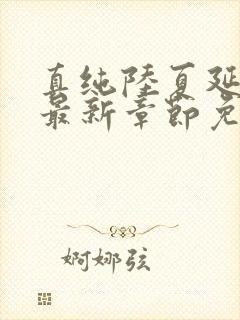 真纯陆夏延
最新章节免
婀娜弦